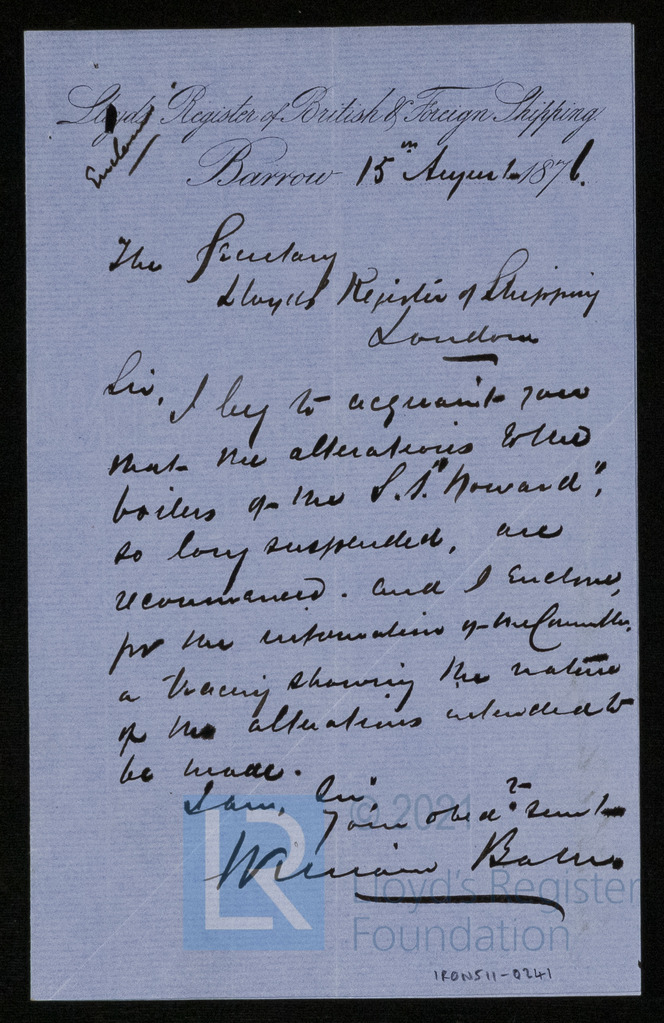 Lloyd's Register of British & Foreign Shipping.
Enclosure
Barrow 15th August 1876.
The Secretary
Lloyds' Register of Shipping
London
Sir,
I beg to acquaint you
that the alterations to the
boilers of the S.S. "Howard",
so long suspended, are
recommenced. and I enclose,
for the information of the Committee,
a tracing showing the nature
of the alterations intended to
be made.
I am, Sir,
Your obedt servt
William
© 2021
Lloyd's Register
Foundation
LR
IRON511-0241